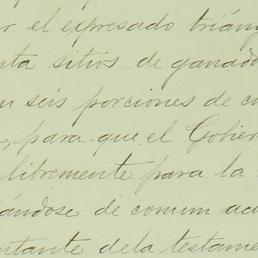 r el expresado trián
ta sitios de ganado
n seis porciones de c
, para que el Gobier
libremente para la
ándose de comun ac
ntante dela testame